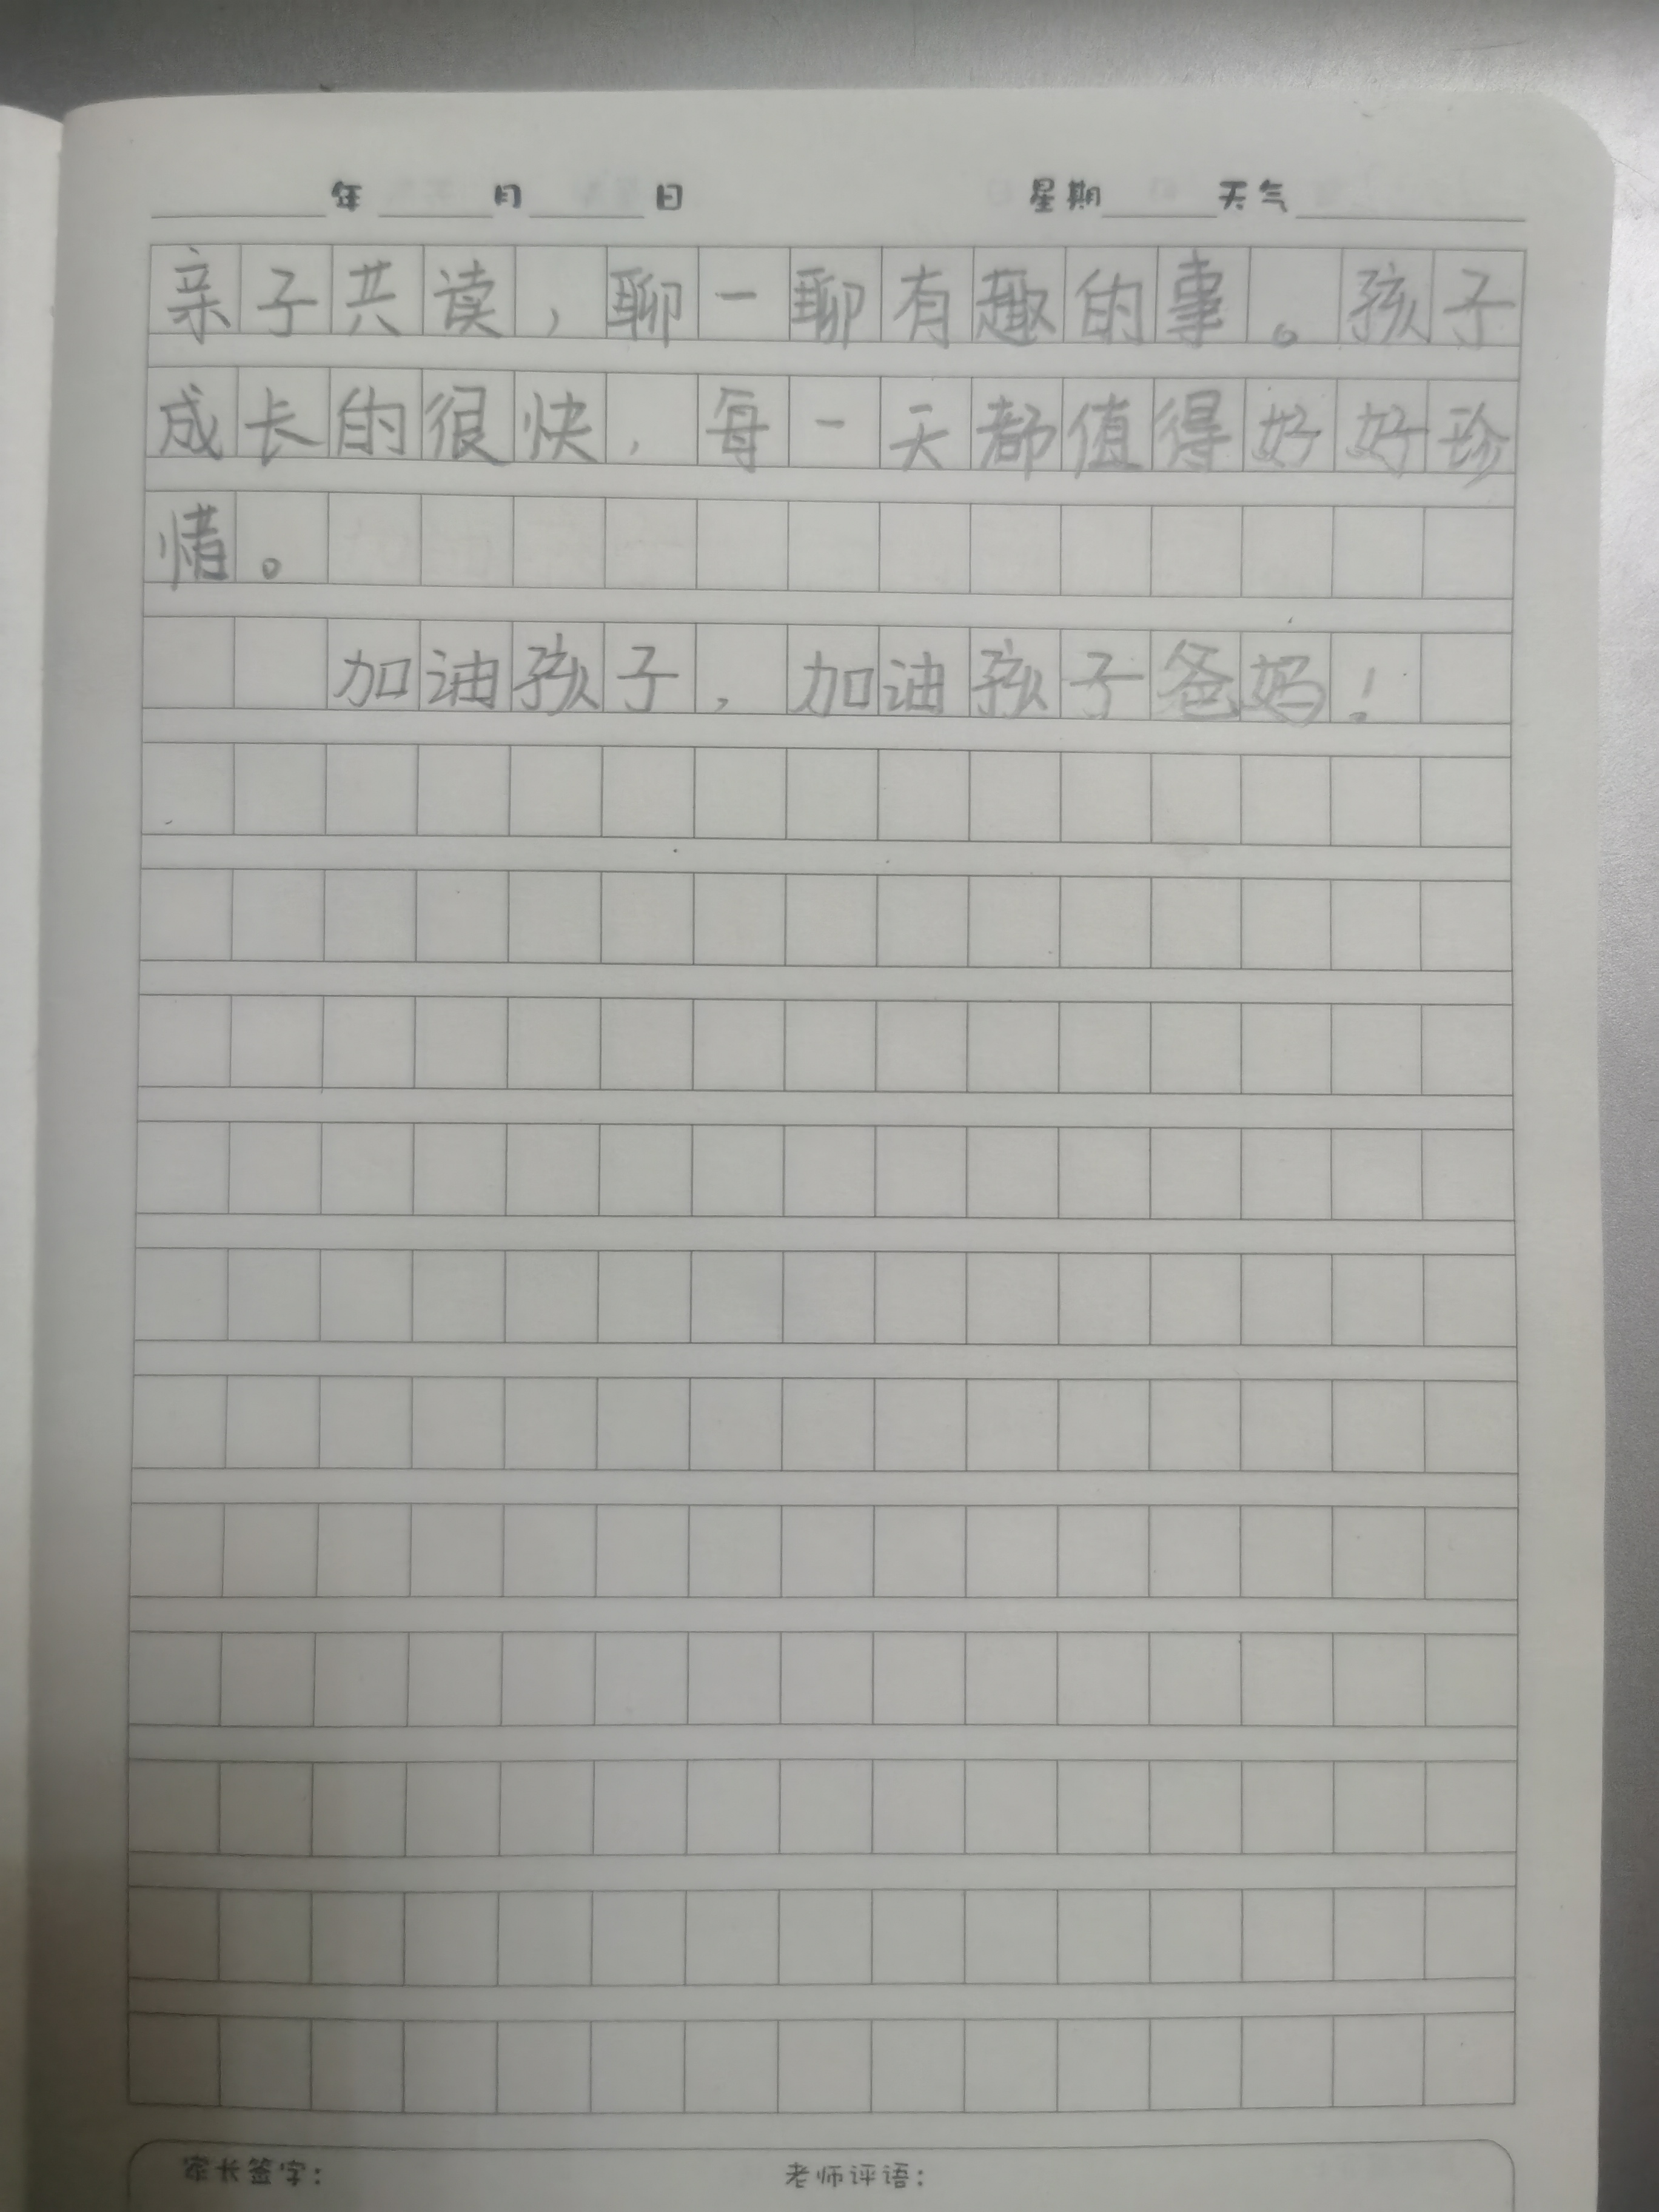 年 月 日 星期 天气
亲子共读，聊一聊有趣的事。孩子
成长的很快，每一天都值得好好珍
惜。
加油孩子，加油孩子爸妈！
家长签字： 老师评语：